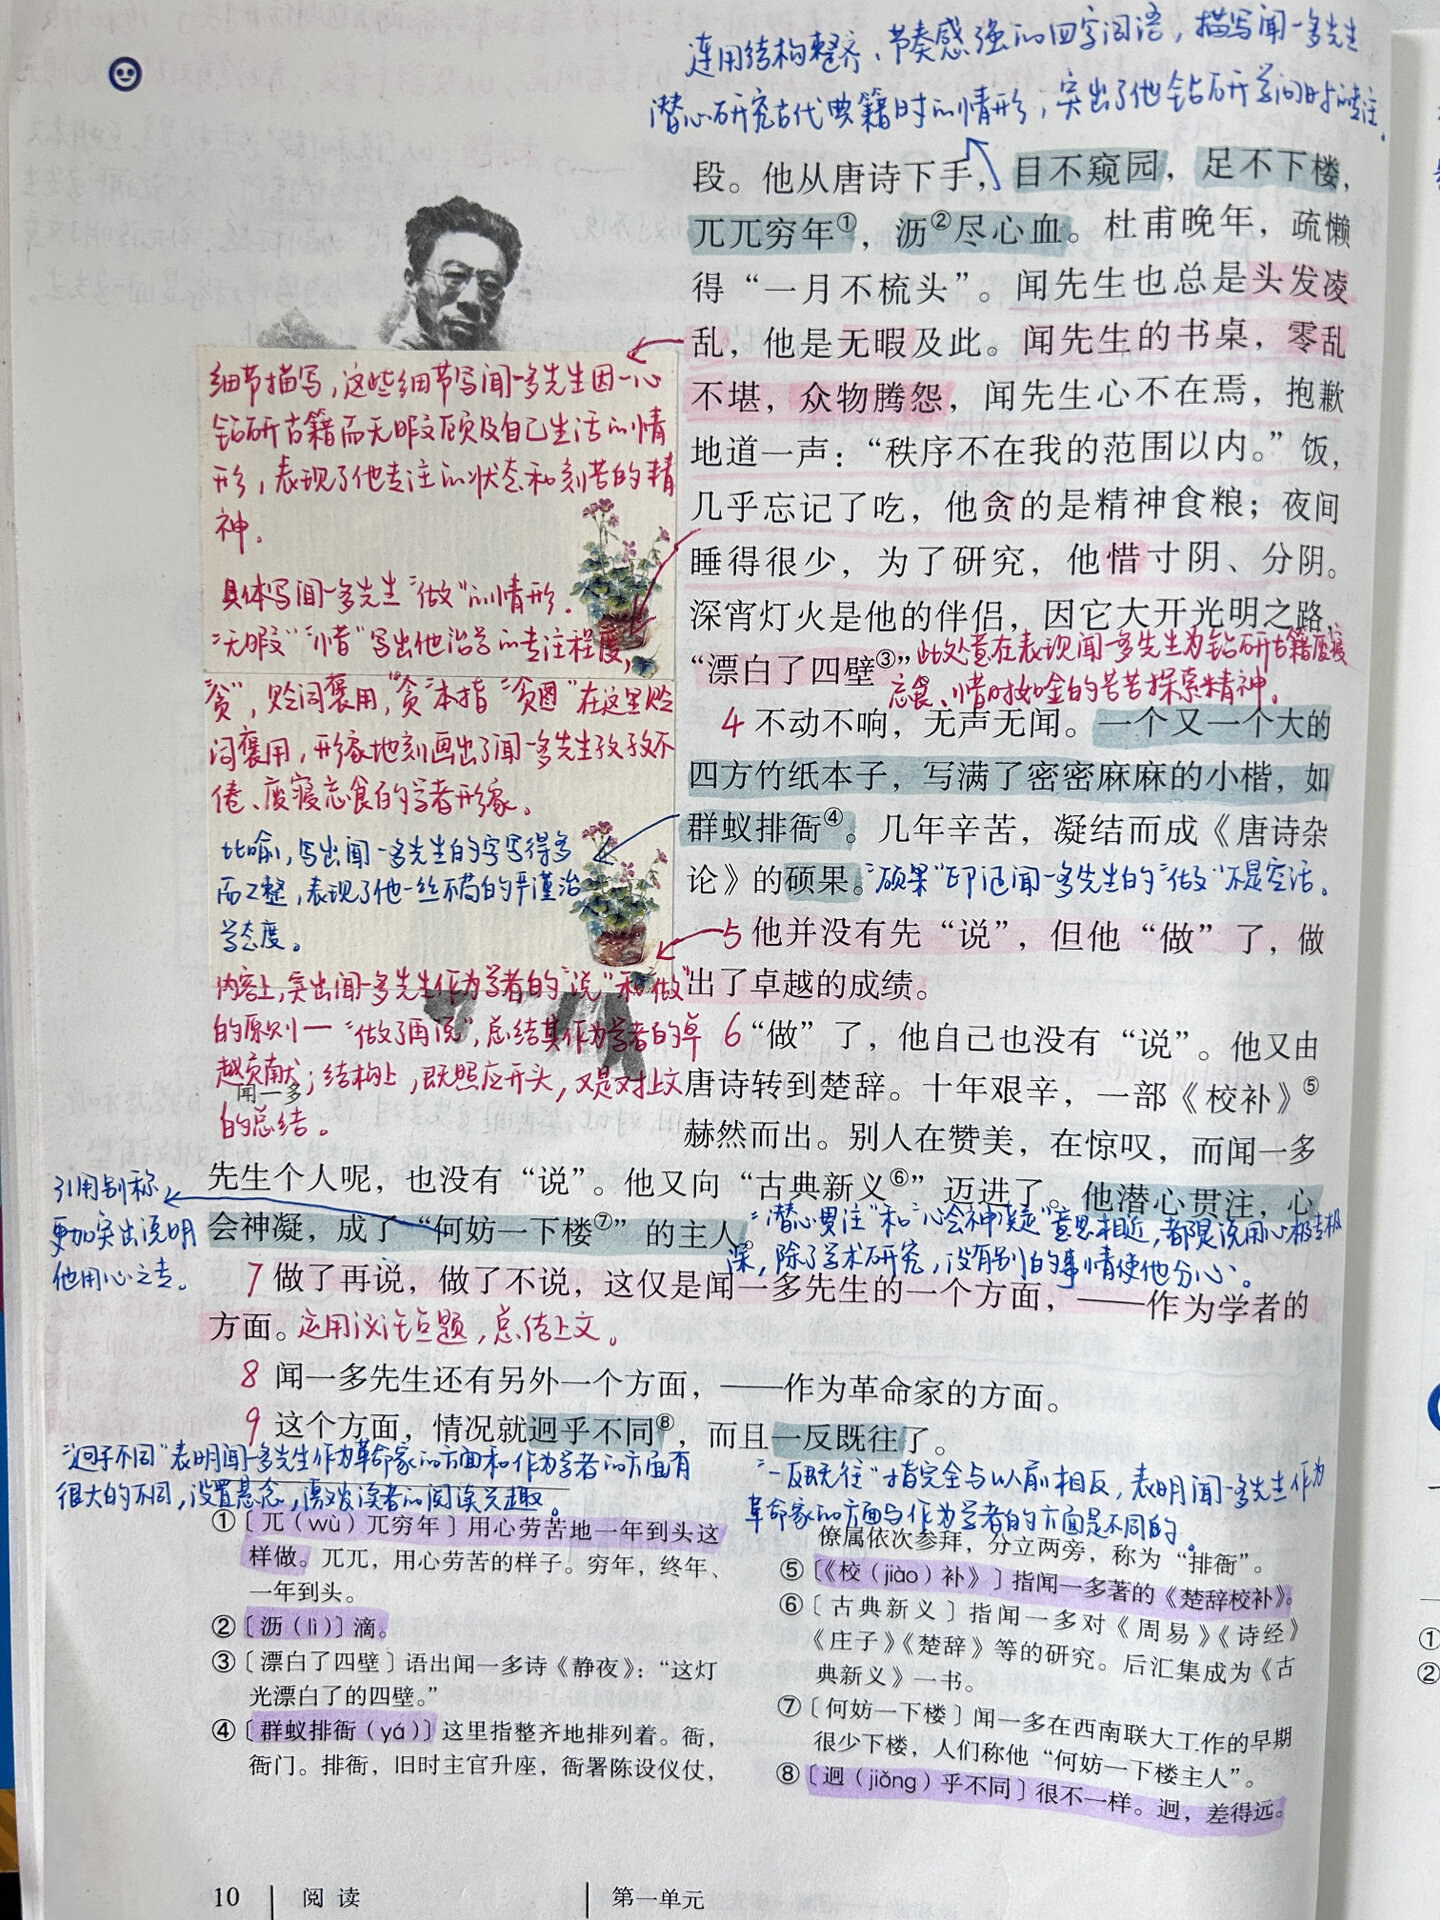 连用结构整齐、节奏感强的四字词语，描写闻一多先生
潜心研究古代典籍时的情形，突出了他钻研学问时的专注。
段。他从唐诗下手，目不窥园，足不下楼，
兀兀穷年①，沥②尽心血。杜甫晚年，疏懒
得“一月不梳头”。闻先生也总是头发凌
乱，他是无暇及此。闻先生的书桌，零乱
不堪，众物腾怨，闻先生心不在焉，抱歉
地道一声：“秩序不在我的范围以内。”饭，
几乎忘记了吃，他贪的是精神食粮；夜间
睡得很少，为了研究，他惜寸阴、分阴。
深宵灯火是他的伴侣，因它大开光明之路，
“漂白了四壁③”
此处意在表现闻一多先生为钻研古籍废寝
忘食、惜时如金的苦苦探索精神。
细节描写，这些细节写闻一多先生因一心
钻研古籍而无暇顾及自己生活的情
形，表现了他专注的状态和刻苦的精
神。
具体写闻一多先生“做”的情形。
“无暇”“惜”写出他治学的专注程度，
“贪”，贬词褒用，“贪”本指“贪图”在这里贬
词褒用，形象地刻画出了闻一多先生孜孜不
倦、废寝忘食的学者形象。
比喻，写出闻一多先生的字写得多
而工整，表现了他一丝不苟的严谨治
学态度。
内容上，突出闻一多先生作为学者的“说”和“做”
的原则一“做了再说”，总结其作为学者的卓
越贡献；结构上，既照应开头，又是对上文
的总结。
闻一多
4 不动不响，无声无闻。一个又一个大的
四方竹纸本子，写满了密密麻麻的小楷，如
群蚁排衙④。几年辛苦，凝结而成《唐诗杂
论》的硕果。“硕果”印证闻一多先生的“做”不是空话。
5 他并没有先“说”，但他“做”了，做
出了卓越的成绩。
6 “做”了，他自己也没有“说”。他又由
唐诗转到楚辞。十年艰辛，一部《校补》⑤
赫然而出。别人在赞美，在惊叹，而闻一多
先生个人呢，也没有“说”。他又向“古典新义⑥”迈进了。他潜心贯注，心
会神凝，成了“何妨一下楼⑦”的主人。
引用别称
更加突出说明
他用心之专。
“潜心贯注”和“心会神凝”意思相近，都是说用心极专极
深，除了学术研究，没有别的事情使他分心。
7 做了再说，做了不说，这仅是闻一多先生的一个方面，——作为学者的
方面。运用议论点题，总结上文。
8 闻一多先生还有另外一个方面，——作为革命家的方面。
9 这个方面，情况就迥乎不同⑧，而且一反既往了。
“迥乎不同”表明闻一多先生作为革命家的方面和作为学者的方面有
很大的不同，设置悬念，激发读者的阅读兴趣。
“一反既往”指完全与以前相反，表明闻一多先生作为
革命家的方面与作为学者的方面是不同的。
①〔兀（wù）兀穷年〕用心劳苦地一年到头这
样做。兀兀，用心劳苦的样子。穷年，终年、
一年到头。
②〔沥（lì）〕滴。
③〔漂白了四壁〕语出闻一多诗《静夜》：“这灯
光漂白了的四壁。”
④〔群蚁排衙（yá）〕这里指整齐地排列着。衙，
衙门。排衙，旧时主官升座，衙署陈设仪仗，
僚属依次参拜，分立两旁，称为“排衙”。
⑤〔《校（jiào）补》〕指闻一多著的《楚辞校补》。
⑥〔古典新义〕指闻一多对《周易》《诗经》
《庄子》《楚辞》等的研究。后汇集成为《古
典新义》一书。
⑦〔何妨一下楼〕闻一多在西南联大工作的早期
很少下楼，人们称他“何妨一下楼主人”。
⑧〔迥（jiǒng）乎不同〕很不一样。迥，差得远。
10 阅读 第一单元